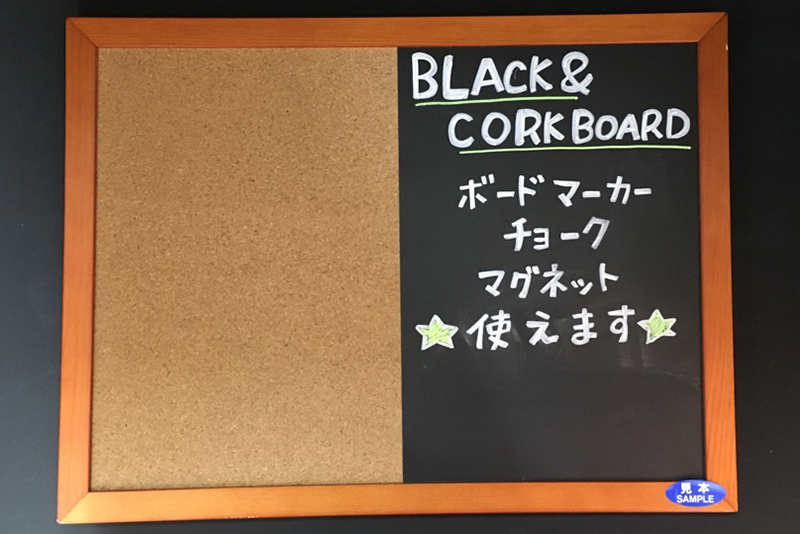 BLACK&
CORKBOARD
ボードマーカー
チョーク
マグネット
使えます
見本
SAMPLE